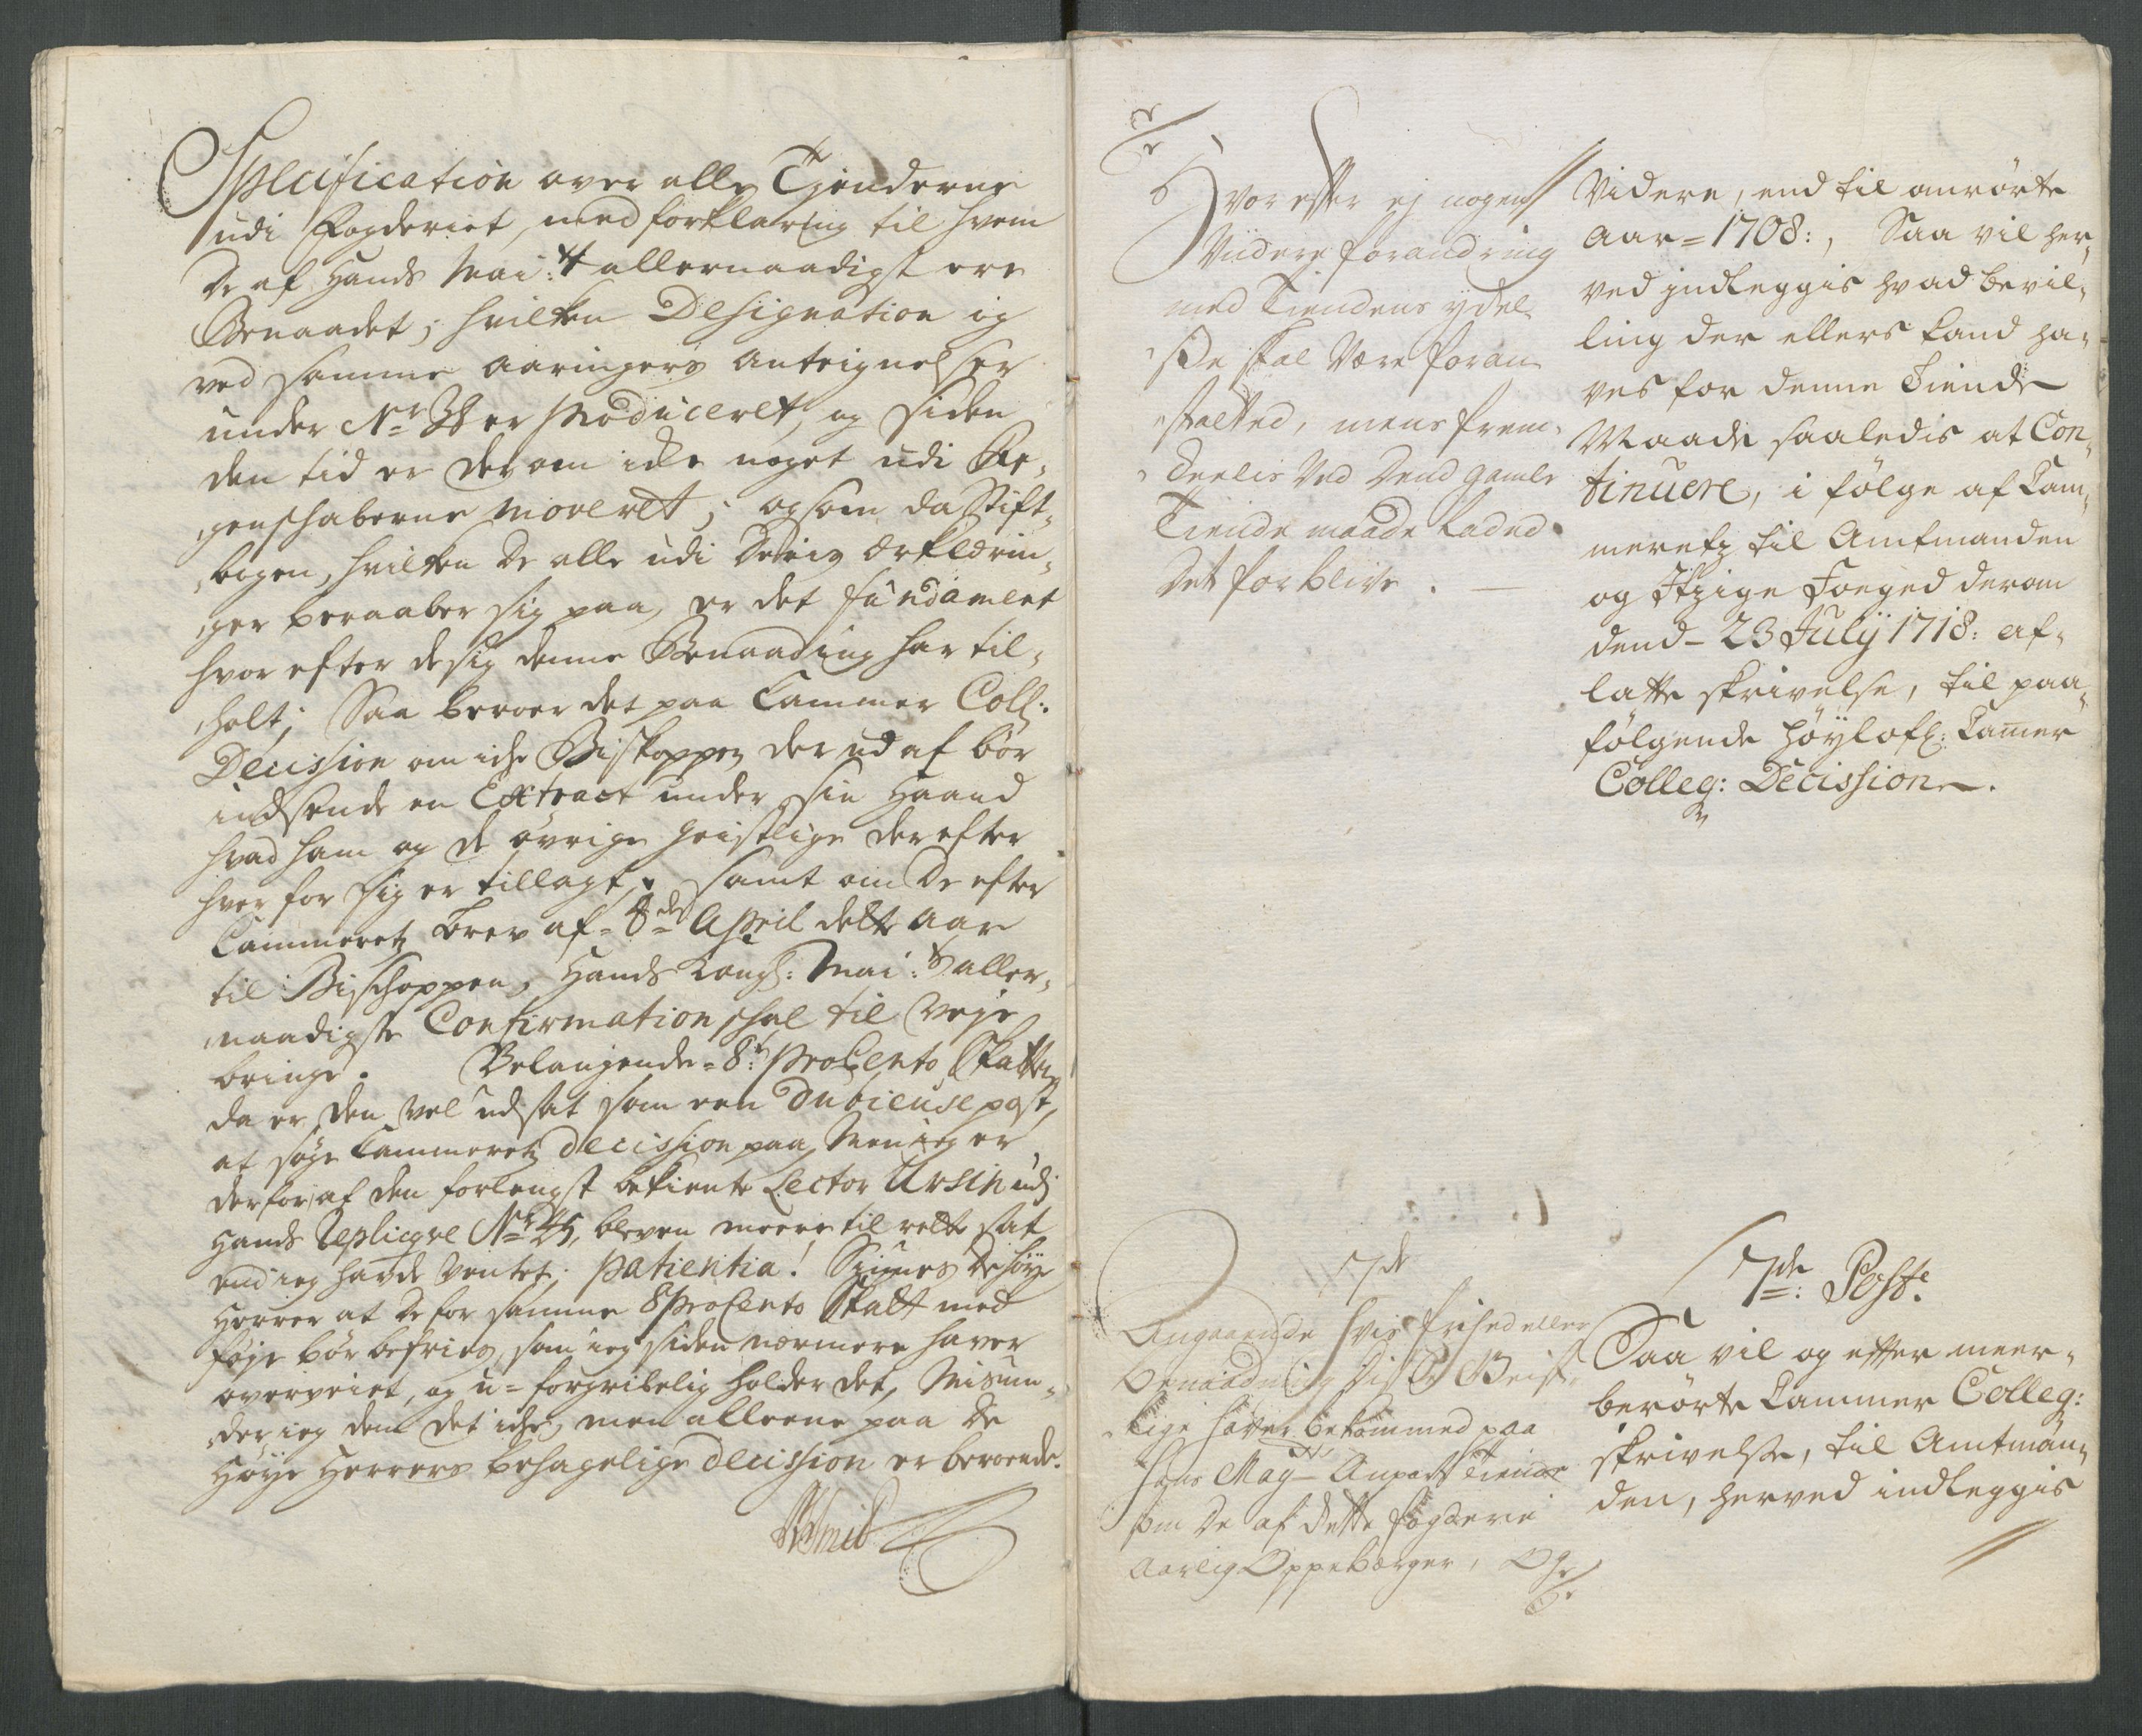 Specification over alle Tjenderne
udi Fogderiet, med forklaring til hvem
de af Hands Mai:tt allernaadigst ere
Benaadet; hvilken Designation og
ved samme aaringers Anteignelser
under No er Produceret, og siden
den tid er derom iche noget udi Re-
genschaberne moveret; og som da Stift-
bogen, hvilken de alle udi Deris Erklærin-
ger beraaber sig paa, er det fundament
hvor efter de sig denne Benaading har til-
holt; Saa beroer det paa Cammer Coll:
Decission om iche Biskoppen der ud af bör
indsende en Extract under sin Haand
hvad ham og de övrige Geistlige derefter
hver for sig er tillagt, samt om de efter
Cammerets brev af 8de April dette Aar
til Bischoppen, Hands Kongl: Mai:tt aller-
naadigste Confirmation schal til veje
bringe. Belangende 8t ProCento Skatten
da er den vel udsat som een Dubieuse post,
at søge Cammerets decission paa, Men ieg er
derfor af den forlengst bekiente Lector Ursin udj
Hands Replicqve No 25, bleven meere til rette sat
end ieg hafde ventet; patientia! Synnes de høye
Herrer at de for samme 8 ProCento Skatt med
føje bör befries, som ieg siden nærmere haver
overveiet, og u-forgribelig holder det, Misun-
der ieg dem det iche, men alleene paa De
Høye Herrers behagelige decission er beroende.
Hvor effter ej nogen
Viidere forandring
med Tiendens ydel-
se skal Være foran-
staltted, mens frem-
deelis Ved Dend gamle
Tiende maade Laded
Det forblive.
Videre, end til anrörte
Aar = 1708:, Saa vil her-
ved indleggis hvad bevil-
ling der ellers kand ha-
ves for denne Tiende
Maade saaledis at Con-
tinuere, i følge af Cam-
merets til Amtmanden
og Itzige Foeged derom
dend 23 Julÿ 1718: af-
latte skrivelse, til paa-
følgende Höÿlofl: Cammer
Colleg: Decission.
7de
Angaaende hvis frihed eller
Benaadning disse Geist-
lige haver bekommed paa
Hans Mayts Anpart Tiende
som De af dette fogderie
Aarlig Oppebærger, Og
7de: Post:
Saa vil og effter meer-
berörte Cammer Colleg:
skrivelse, til Amtman-
den, herved indleggis